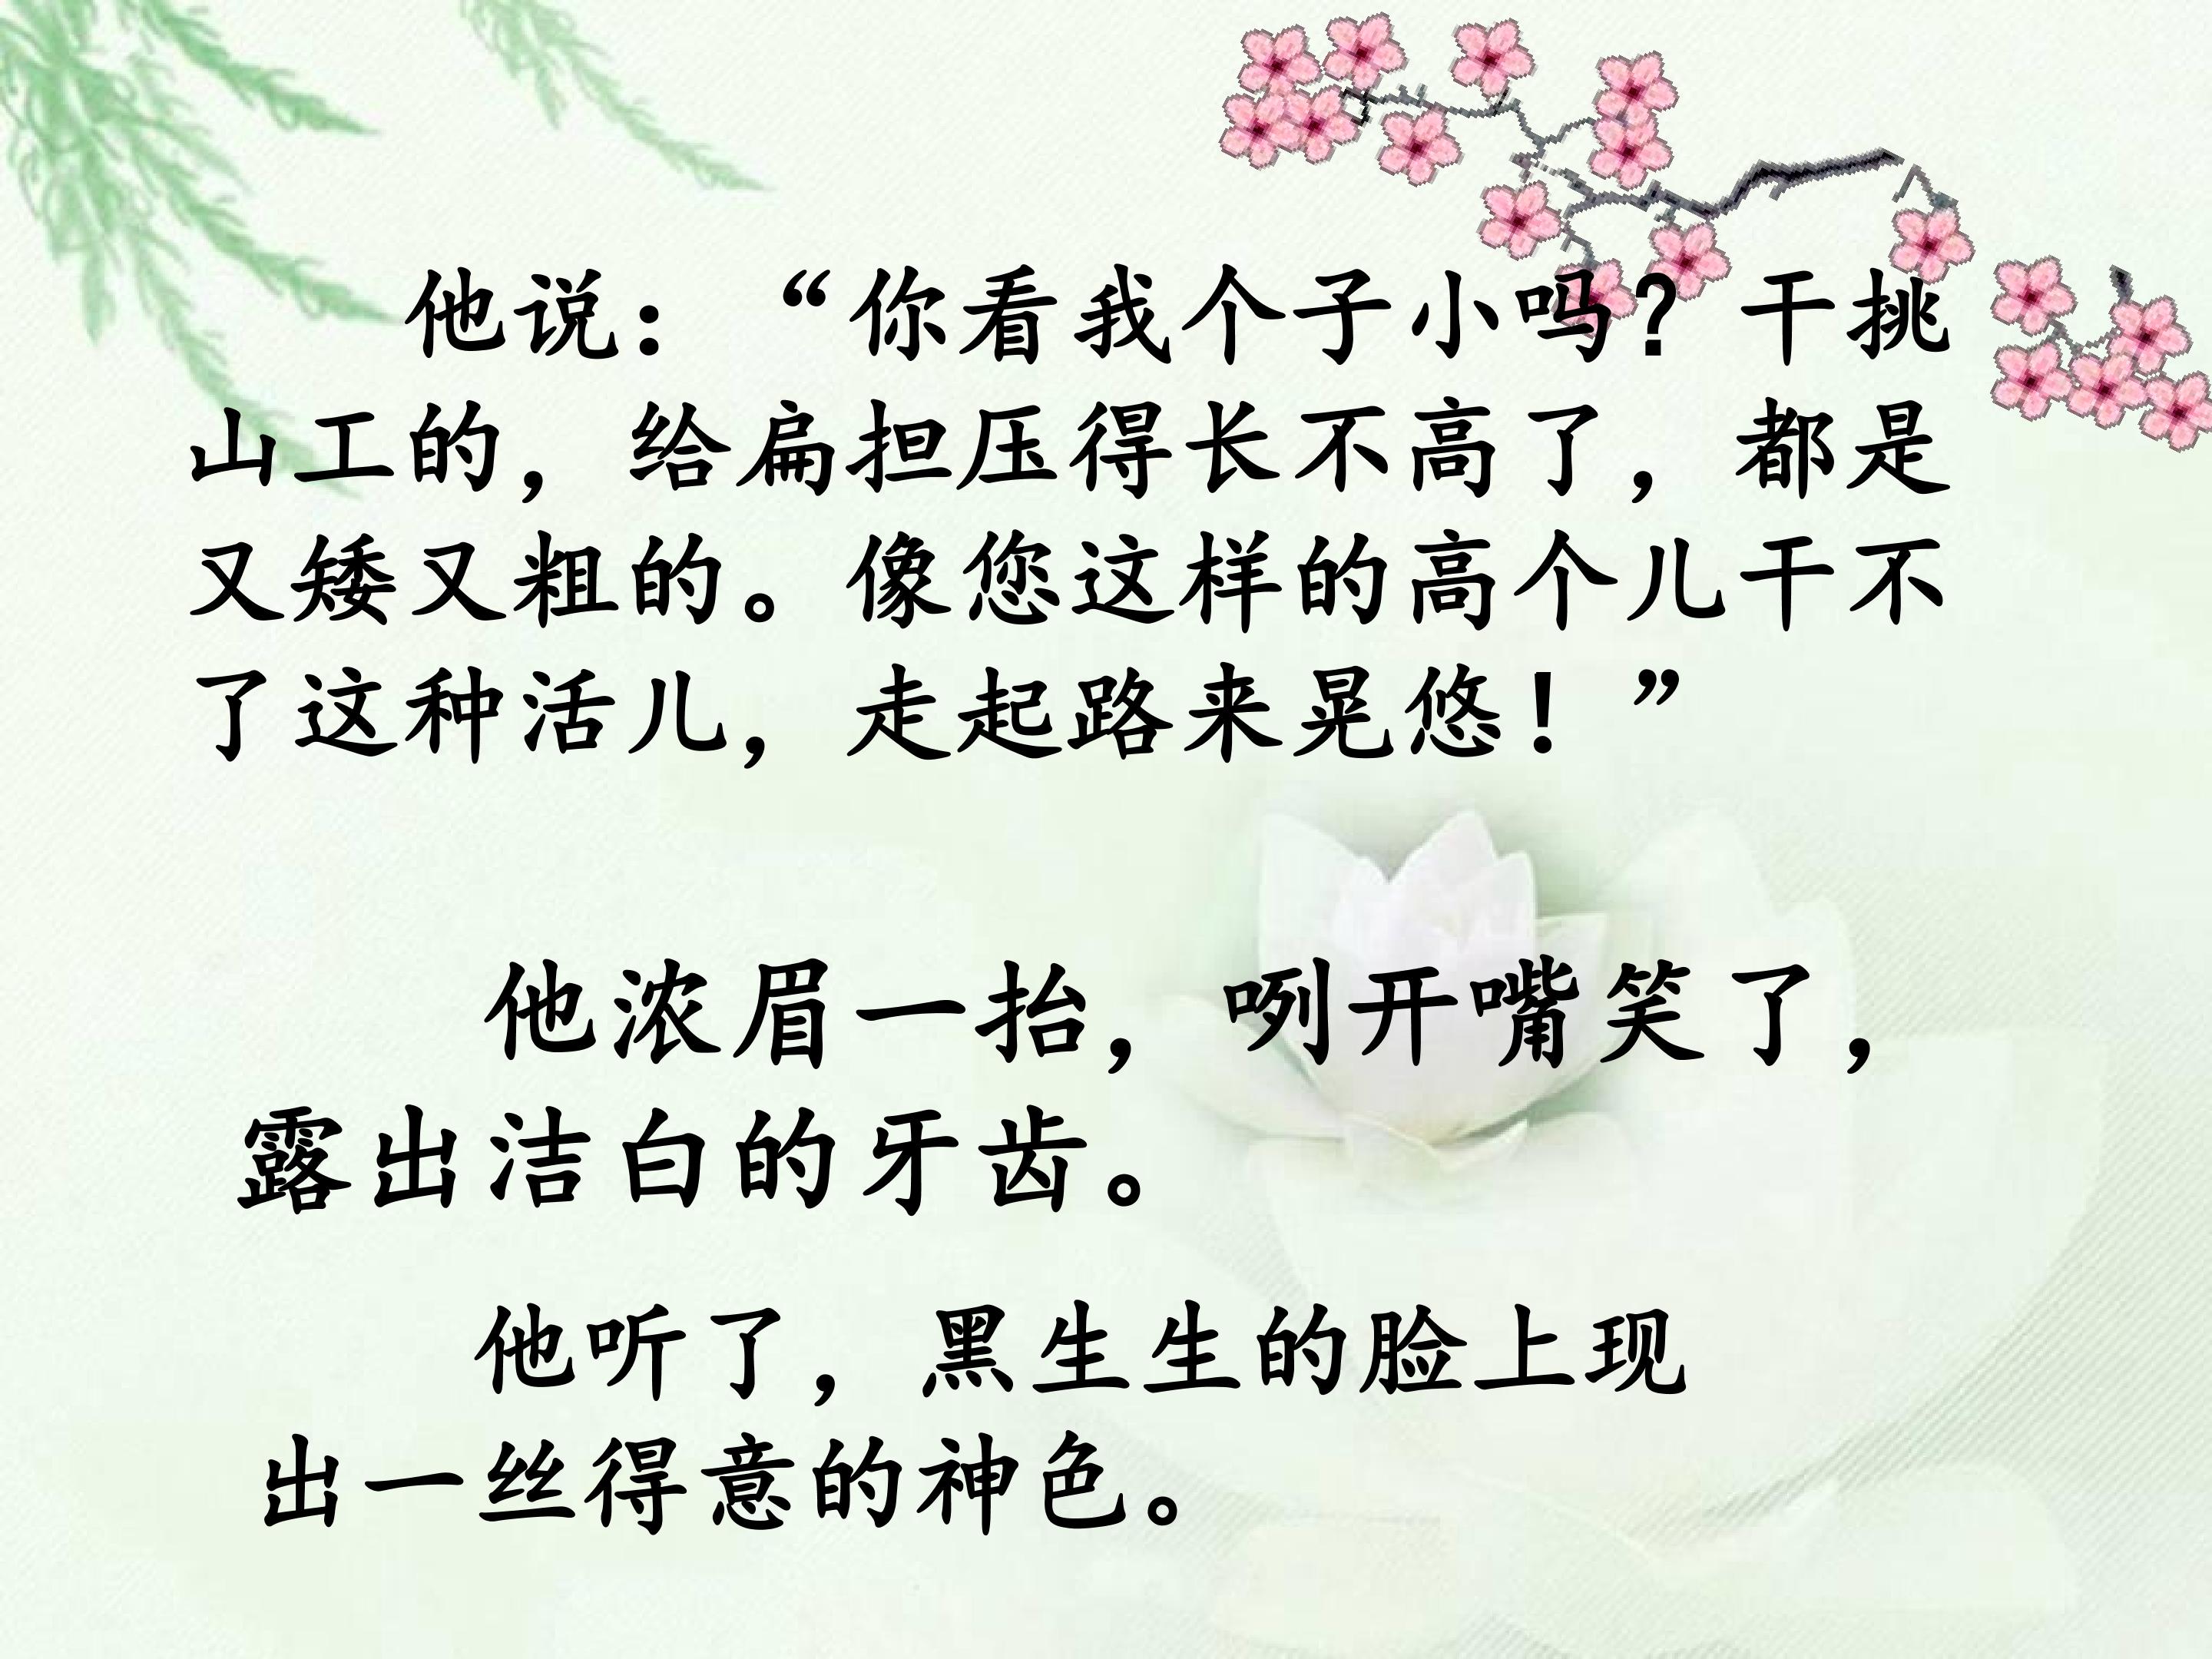 他说：“你看我个子小吗？干挑
山工的，给扁担压得长不高了，都是
又矮又粗的。像您这样的高个儿干不
了这种活儿，走起路来晃悠！”
他浓眉一抬，咧开嘴笑了，
露出洁白的牙齿。
他听了，黑生生的脸上现
出一丝得意的神色。